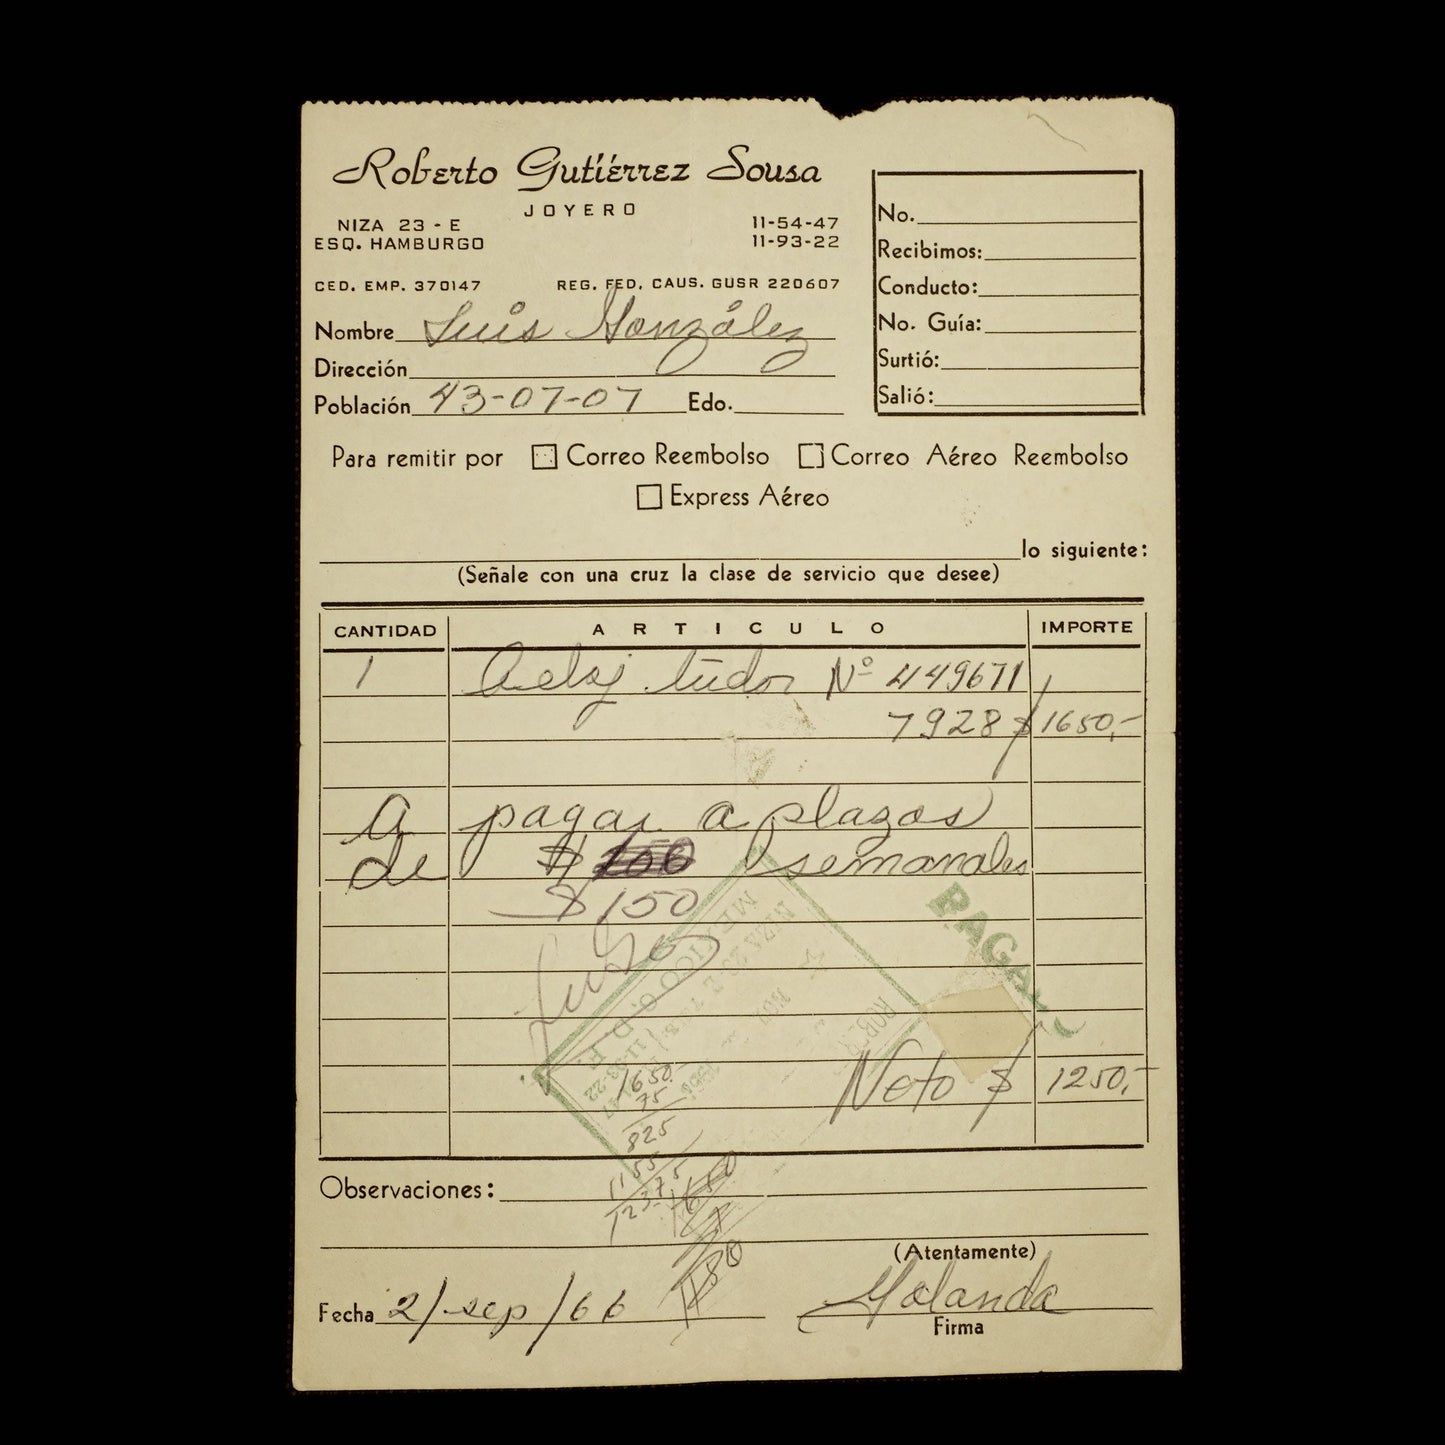 Roberto Gutiérrez Sousa
JOYERO
NIZA 23 - E
ESQ. HAMBURGO
11-54-47
11-93-22
CED. EMP. 370147
REG. FED. CAUS. GUSR 220607
No.
Recibimos:
Conducto:
No. Guía:
Surtió:
Salió:
Nombre Luis González
Dirección
Población 43-07-07 Edo.
Para remitir por Correo Reembolso Correo Aéreo Reembolso
Express Aéreo
lo siguiente:
(Señale con una cruz la clase de servicio que desee)
CANTIDAD ARTICULO IMPORTE
1 Reloj tudor Nº 449671
7928 $ 1650,-
A pagar a plazos
de $ semanales
$150
PAGADO
NIZA 23-E
MEXICO D. F.
11-93-22
1650.
75
825
1155
1237.5
Neto $ 1250,-
Observaciones:
1650
1180
(Atentamente)
Fecha 2/sep/66
Yolanda
Firma